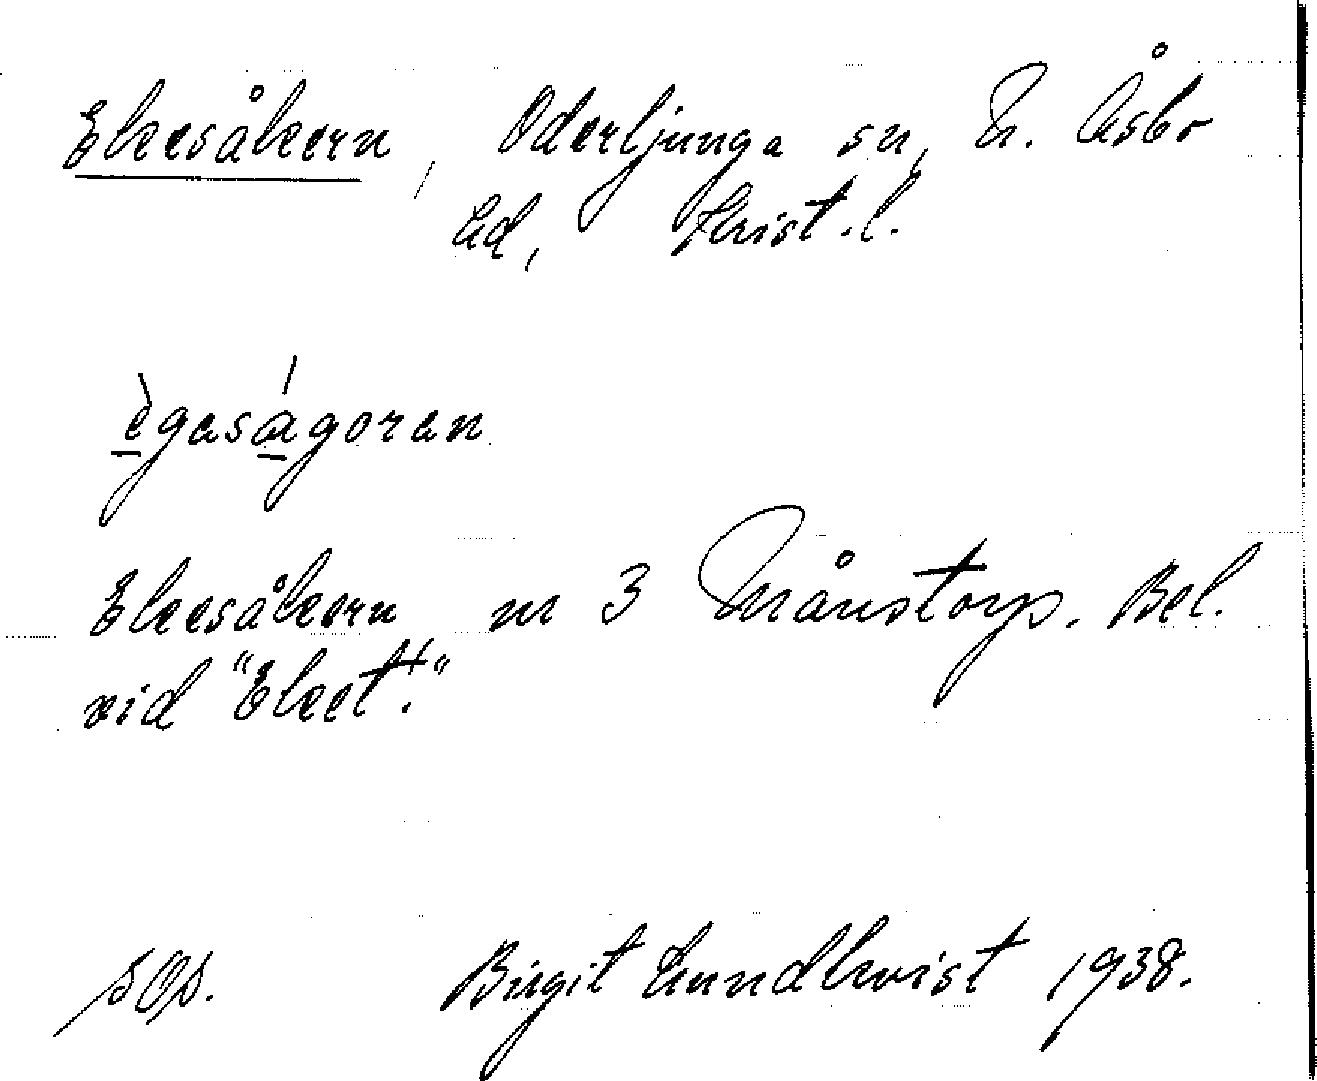 Ekesåkern, Oderljunga sn, N. Åsbo
hd, Krist. l.
ègaságoran
Ekesåkern nr 3 Månstorp. Bel.
vid "Eket".
SOA.
Birgit Lundkvist 1938.